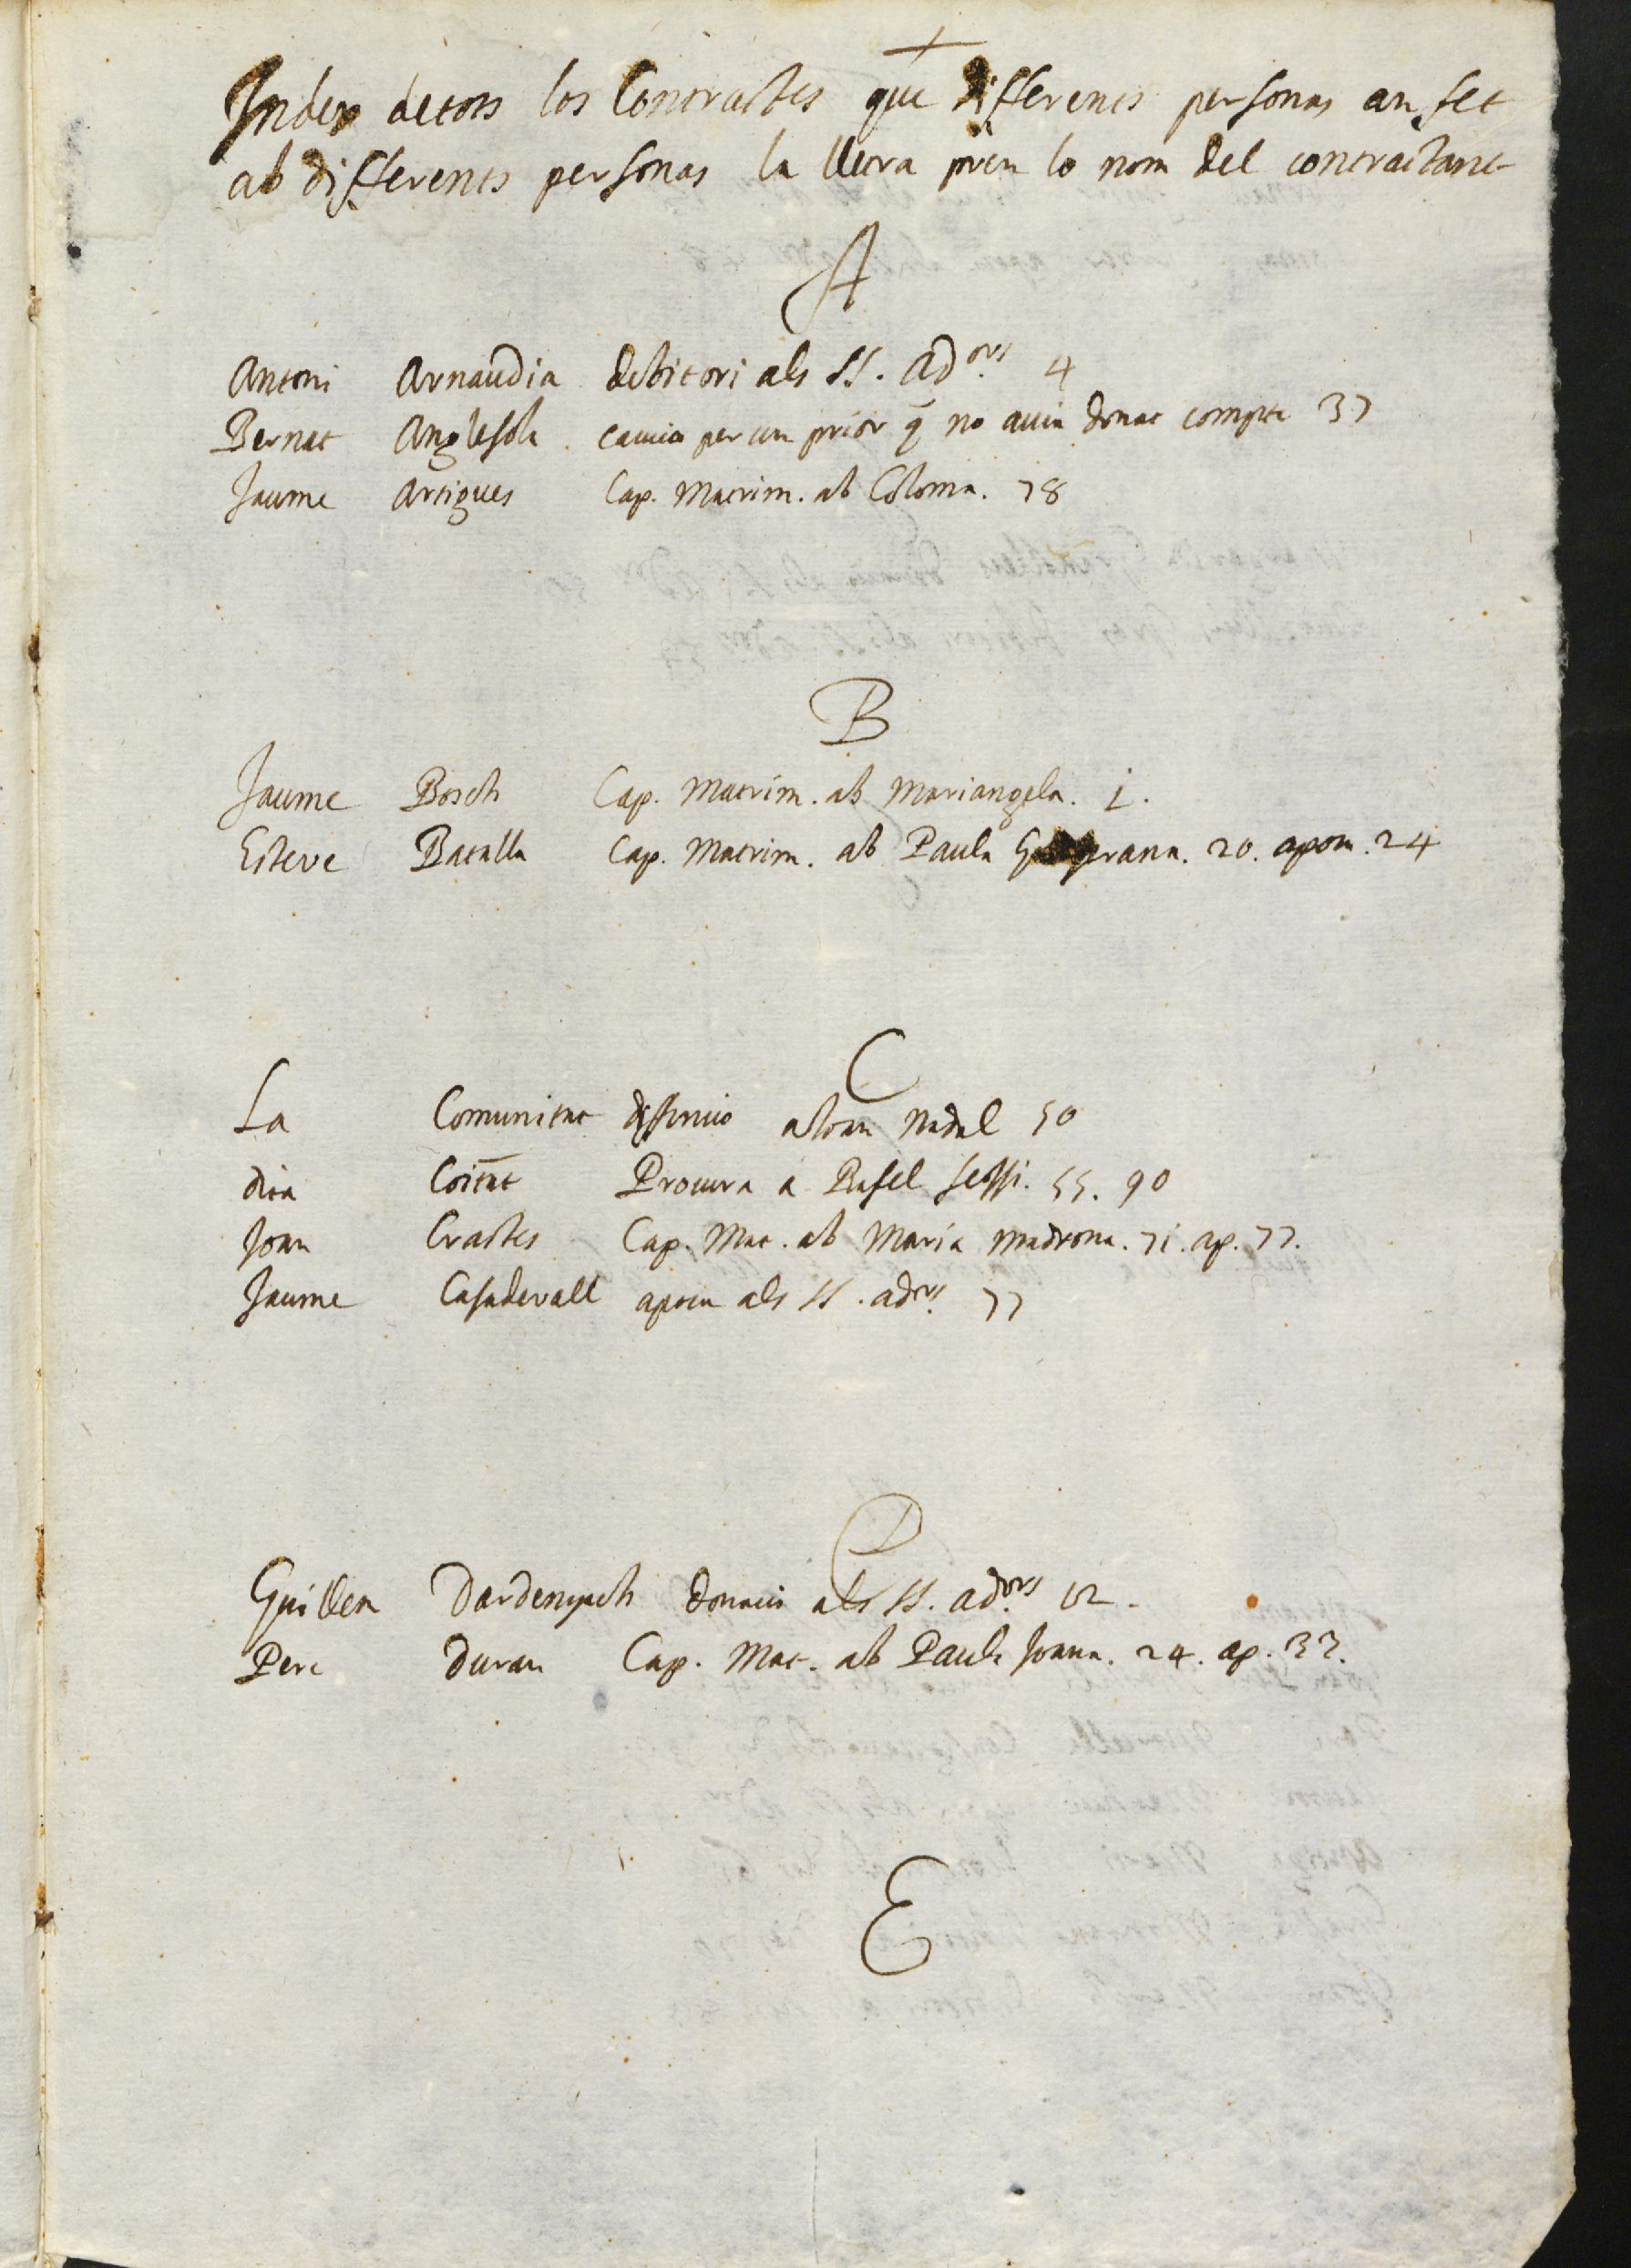 +
Index de tots los Contractes que differents personas an fet
ab differents personas la lletra pren lo nom del contractant
A
Antoni Arnaudia debitori als SS. Ad.ors 4
Bernat Anglesola caucio per un prior q̃ no avia donat compte 37
Jaume Artigues Cap. Matrim. ab Coloma. 78
B
Jaume Bosch Cap. Matrim. ab Mariangela. 1.
Esteve Batalla Cap. Matrim. ab Paula grana. 20. apoca. 24
C
La Comunitat diffinicio a Joan Nadal 50
dita Coītat Procura a Rafel Sessi. 55. 90
Joan Cractes Cap. Mat. ab Maria Madrona. 71. ap. 77.
Jaume Casadevall apoca als SS. ad.ors 77
D
Guillem Dardenpech donacio als SS. ad.ors 12.
Pere Duran Cap. Mat. ab Paula Joana. 24. ap. 33.
E